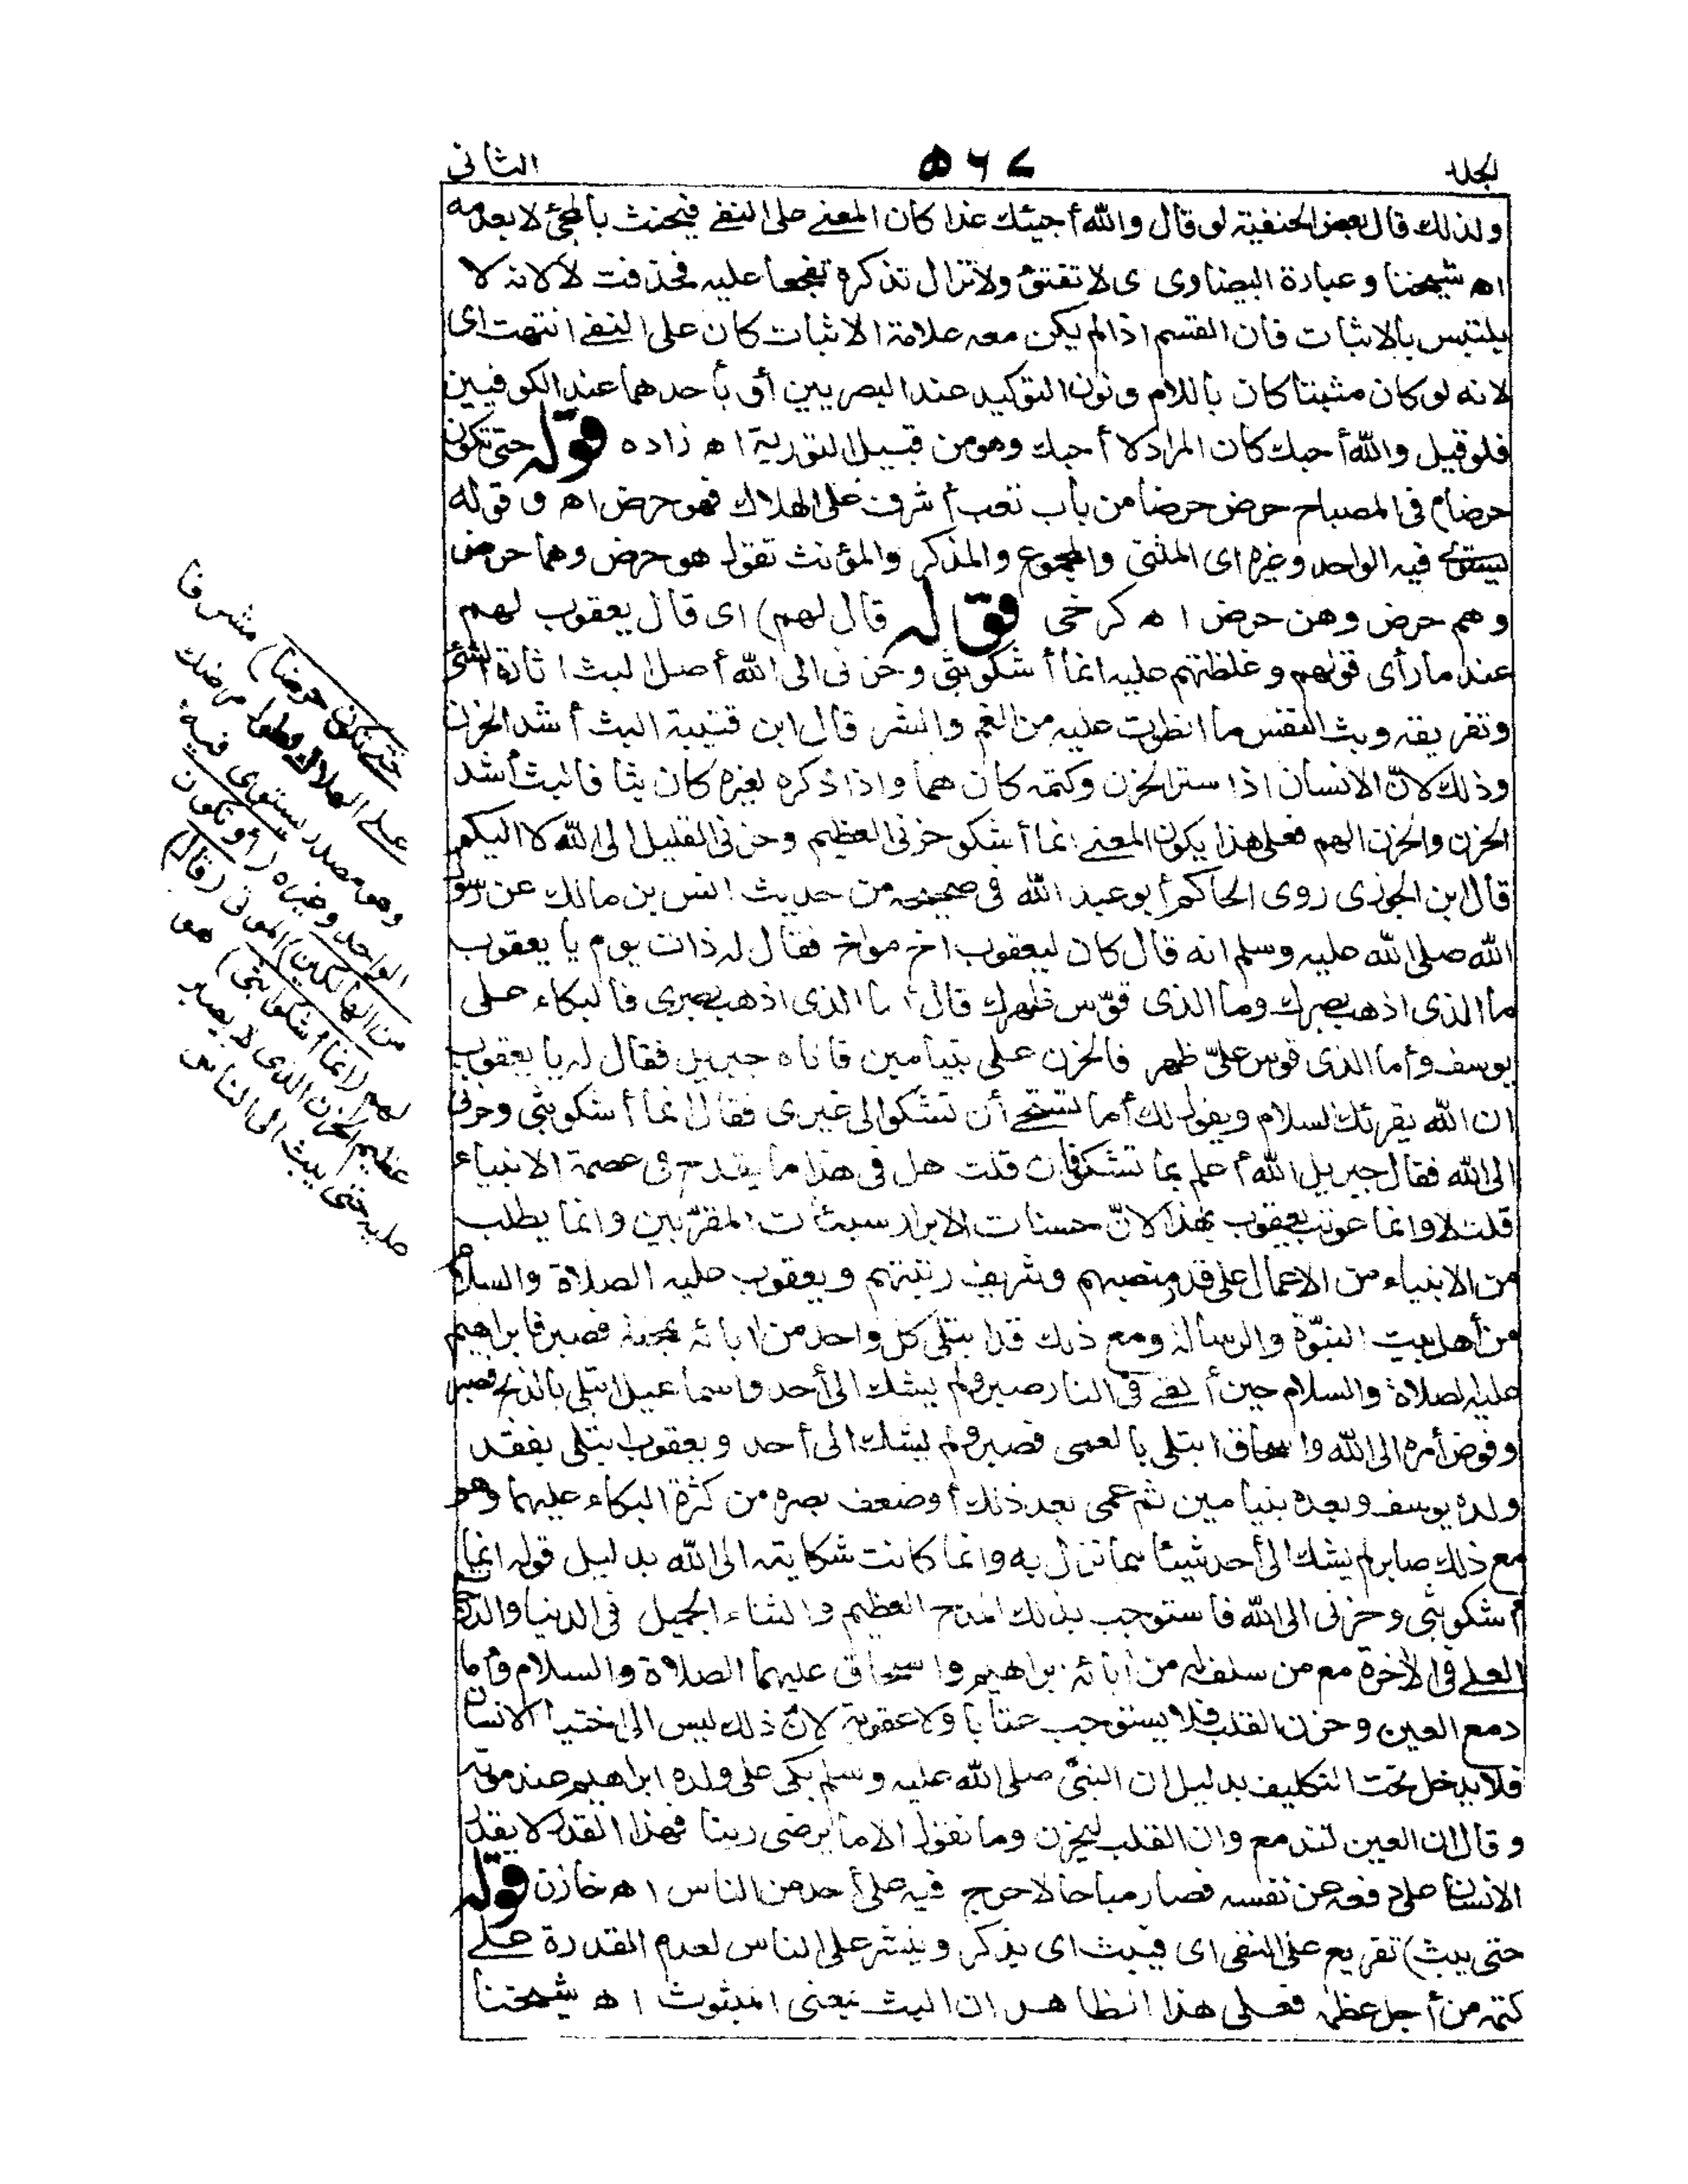 الجلد ٥٦٧ الثانى
ولذلك قال بعض الحنفية لو قال والله أجيئك غدا كان المعنے على النفے فيحنث بالمجئ لا بعدمه
اه شيخنا وعبارة البيضاوى اى لا تفتئ ولا تزال تذكره تفجعا عليه فحذفت لا لانه لا
يلتبس بالاثبات فان القسم اذا لم يكن معه علامة الاثبات كان على النفے انتهت اى
لانه لو كان مثبتا كان باللام ونون التوكيد عند البصريين أو بأحدهما عند الكوفيين
فلو قيل والله أحبك كان المراد لا أحبك وهو من قبيل التورية اه زاده قوله حتى تكون
حرضا) فى المصباح حرض حرضا من باب تعب أشرف على الهلاك فهو حرض اه وقوله
يستوى فيه الواحد وغيره اى المثنى والمجموع والمذكر والمؤنث تقول هو حرض وهما حرض
وهم حرض وهن حرض اه كرخى قوله قال لهم) اى قال يعقوب لهم
عند ما رأى قولهم وغلظتهم عليه انما أشكو بثى وحزنى الى الله أصل البث اثارة الشئ
وتفريقه وبث النفس ما انطوت عليه من الغم والشر قال ابن قتيبة البث أشد الحزن
وذلك لانّ الانسان اذا ستر الحزن وكتمه كان هما واذا ذكره لغيره كان بثا فالبث أشد
الحزن والحزن الهم فعلى هذا يكون المعنے انما أشكو حزنى العظيم وحزنى القليل الى الله لا اليكم
قال ابن الجوزى روى الحاكم أبو عبد الله فى صحيحه من حديث انس بن مالك عن رسول
الله صلى الله عليه وسلم انه قال كان ليعقوب اخ مواخ فقال له ذات يوم يا يعقوب
ما الذى اذهب بصرك وما الذى قوّس ظهرك قال اما الذى اذهب بصرى فالبكاء على
يوسف وأما الذى قوس علىّ ظهر فالحزن على بنيامين فاتاه جبريل فقال له يا يعقوب
ان الله يقرئك السلام ويقول لك أما تستحى أن تشكو الى غيرى فقال انما أشكو بثى وحزنى
الى الله فقال جبريل الله أعلم بما تشكو فان قلت هل فى هذا ما يقدح فى عصمة الانبياء
قلت لا وانما عوتب يعقوب بهذا لانّ حسنات الابرار سيئات المقرّبين وانما يطلب
من الانبياء من الاعمال على قدر منصبهم وشريف رتبتهم ويعقوب عليه الصلاة والسلام
من أهل بيت النبوّة والرسالة ومع ذلك قد ابتلى كل واحد من ابائه بمحنة فصبر فابراهيم
عليه الصلاة والسلام حين ألقے فى النار صبر ولم يشك الى أحد واسماعيل ابتلى بالذبح فصبر
وفوض أمره الى الله واسحاق ابتلى بالعمى فصبر ولم يشك الى أحد ويعقوب ابتلى بفقد
ولده يوسف وبعده بنيامين ثم عمى بعد ذلك أو ضعف بصره من كثرة البكاء عليهما وهو
مع ذلك صابر لم يشك الى أحد شيئا مما نزل به وانما كانت شكايته الى الله بدليل قوله انما
أشكو بثى وحزنى الى الله فاستوجب بذلك المدح العظيم والثناء الجميل فى الدنيا والدرجات
العلے فى الآخرة مع من سلف له من آبائه ابراهيم واسحاق عليهما الصلاة والسلام وأما
دمع العين وحزن القلب فلا يستوجب عتابا ولا عقوبة لانّ ذلك ليس الى اختيار الانسان
فلا يدخل تحت التكليف بدليل ان النبىّ صلى الله عليه وسلم بكى على ولده ابراهيم عند موته
وقال ان العين لتدمع وان القلب ليحزن وما نقول الا ما يرضى ربنا فهذا القدر لا يقدر
الانسان على دفعه عن نفسه فصار مباحا لا حرج فيه على أحد من الناس اه خازن قوله
حتى يبث) تفريع على النفى اى فيبث اى يذكر وينشر على الناس لعدم القدرة علے
كتمه من أجل عظمه فعلى هذا الظاهر ان البث بمعنى المبثوث اه شيخنا
حتى تكون حرضا) مشرفا
على الهلاك لطول مرضك
وهو مصدر يستوى فيه
الواحد وغيره (أو تكون
من الهالكين) الموتى (قال)
لهم (انما أشكو بثى) هو
عظيم الحزن الذى لا يصبر
عليه حتى يبث الى الناس